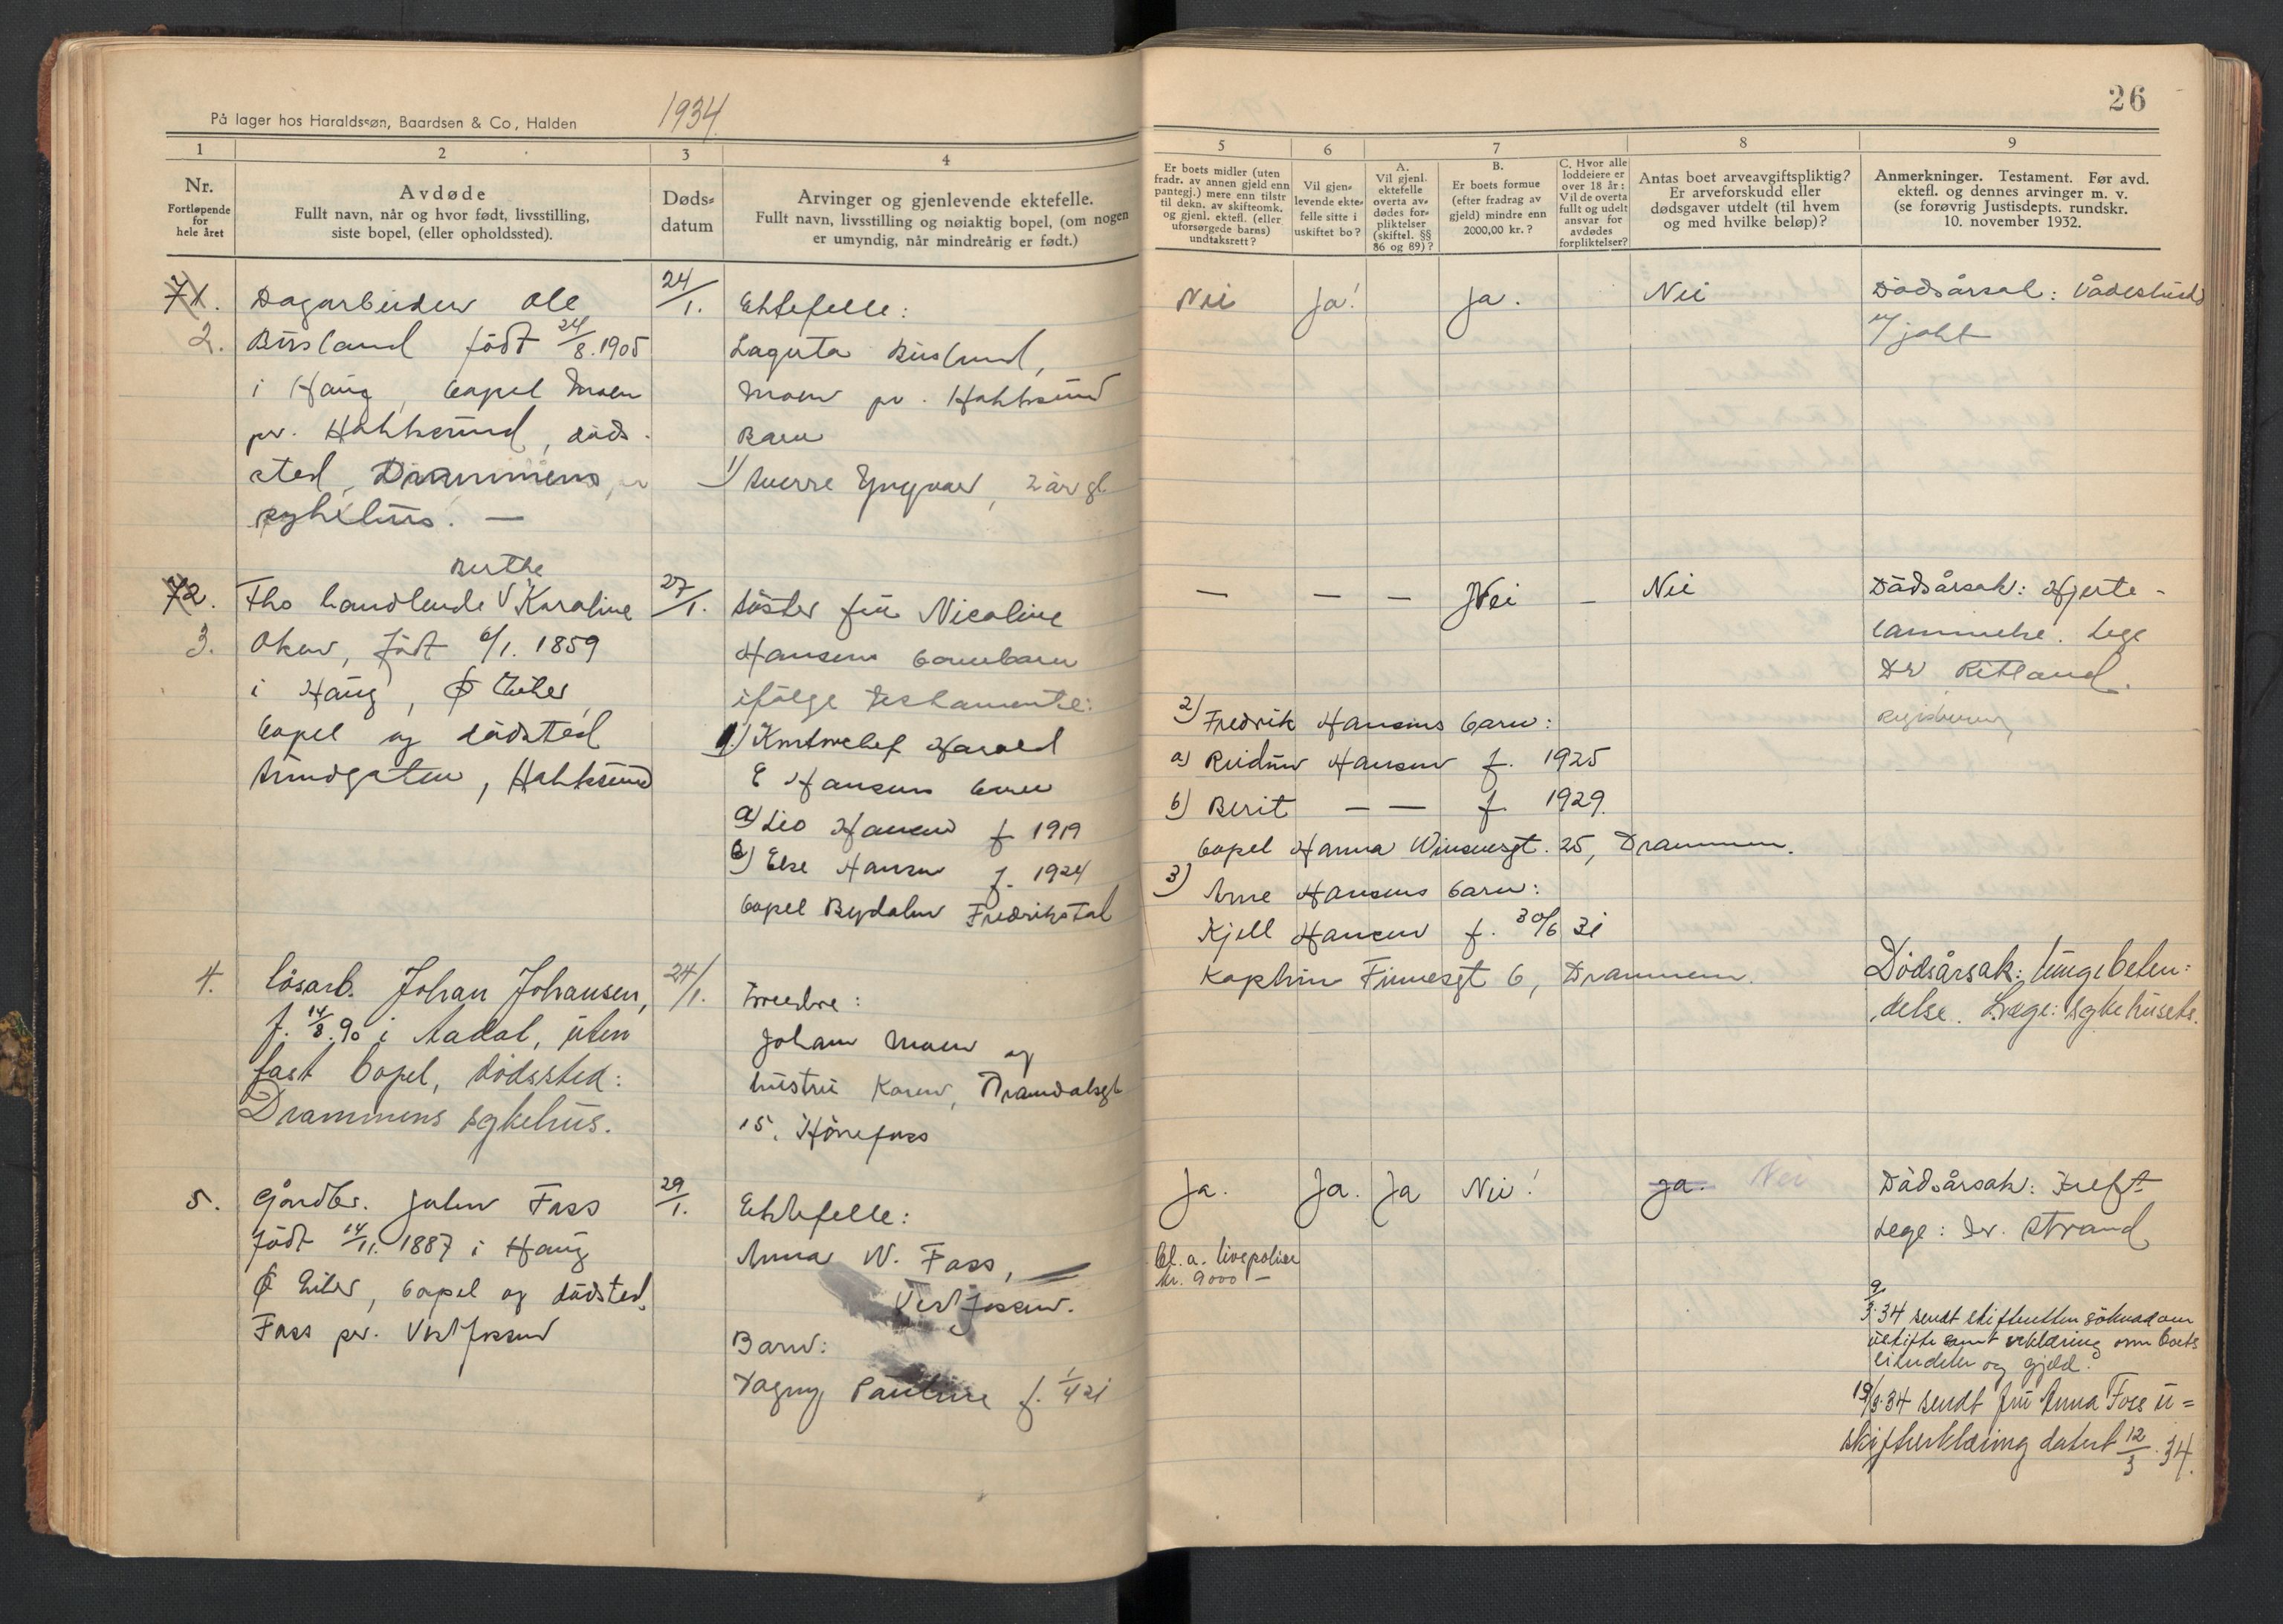 På lager hos Haraldssøn, Baardsen & Co, Halden
1934
1
2
3
4
Nr.
Fortløpende
for
hele året
Avdøde
Fullt navn, når og hvor født, livsstilling,
siste bopel, (eller opholdssted).
Døds-
datum
Arvinger og gjenlevende ektefelle.
Fullt navn, livsstilling og nøiaktig bopel, (om nogen
er umyndig, når mindreårig er født.)
71.
2.
Dagarbeider Ole
Busland født 24/8.1905
i Haug, bopel Moen
pr. Hokksund, døds-
sted, Drammens
sykehus. —
24/1.
Ektefelle:
Busland,
Moen pr. Hokksund
Barn
1) Sverre Yngvar, 2 år gl
72.
3.
Berthe
Fhv handlende V Karoline
Oken, født 6/1. 1859
i Haug, Ø Eiker,
bopel og dødsted
Strandgaten, Hokksund
27/1.
Søster fru Nicoline
Hansens barnebarn
ifølge testamente:
1) Kontorchef Harald
E Hansens barn
a) Leo Hansen f 1919
b) Else Hansen f. 1924
bopel Bydalen Fredrikstad
4.
løsarb. Johan Johansen,
f. 14/8.90 i Aadal, uten
fast bopel, dødssted:
Drammens sykehus.
24/1.
Foreldre:
Johan Moen og
hustru Karen,
15, Hönefoss
5.
Gårdbr. Johan Foss
født 14/11. 1887 i Haug
Ø Eiker, bopel og dødsted,
Foss pr. Vestfossen
29/1.
Ektefelle:
Anna N. Foss, —
Vestfossen.
Barn:
Dagny Pauline f. 1/4 21
26
5
6
7
8
9
Er boets midler (uten
fradr. av annen gjeld enn
pantegj.) mere enn tilstr
til dekn. av skifteomk.
og gjenl. ektefl. (eller
uforsørgede barns)
undtaksrett?
Vil gjen-
levende ekte-
felle sitte i
uskiftet bo?
A.
Vil gjenl.
ektefelle
overta av-
dødes for-
pliktelser
(skiftel. §§
86 og 89)?
B.
Er boets formue
(efter fradrag av
gjeld) mindre enn
2000,00 kr.?
C. Hvor alle
loddeiere er
over 18 år:
Vil de overta
fullt og udelt
ansvar for
avdødes
forpliktelser?
Antas boet arveavgiftspliktig?
Er arveforskudd eller
dødsgaver utdelt (til hvem
og med hvilke beløp)?
Anmerkninger. Testament. Før avd.
ektefl. og dennes arvinger m. v.
(se forøvrig Justisdepts. rundskr.
10. november 1932.
Nei
Ja!
Ja.
Nei
Dødsårsak: Vådeskudd
u/ jakt
—
—
—
Nei
—
Nei
Dødsårsak: Hjerte-
lammelse. Lege
Dr Ritland.
2) Fredrik Hansens barn:
a) Reidun Hansen f. 1925
b) Berit — — f. 1929.
bopel Hanna Winsnesgt. 25, Drammen.
3) Arne Hansens barn:
Kjell Hansen f. 30/6 31
Kaptein Finnesgt 6, Drammen.
Dødsårsak: lungebeten-
delse. Læge: Sykehusets.
Ja.
Ja.
Ja
Nei!
Ja. Nei
Dødsårsak: Kreft
Lege: Dr. Strand
bl. a. livspoliser
kr. 9000 —
9/3.34 sendt skifteretten søknad om
uskifte samt erklæring om boets
eiendeler og gjeld.
19/3.34 sendt fru Anna Foss u=
skifteerklæring datert 12/3.34.